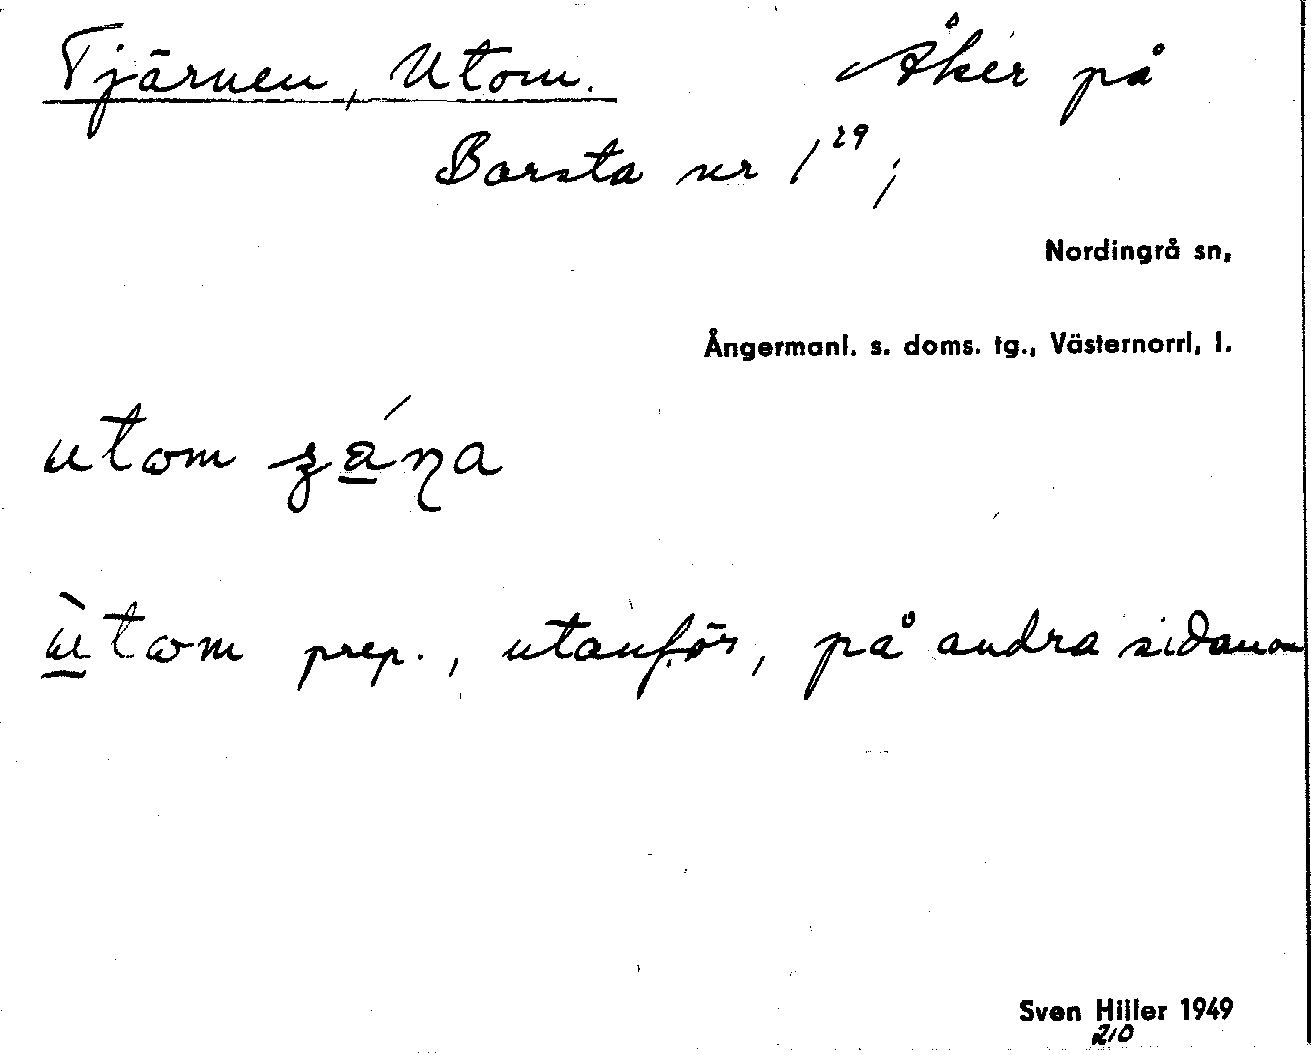 Tjärnen, Utom. Åker på
Barsta nr 1²⁹;
Nordingrå sn,
Ångermanl. s. doms. tg., Västernorrl. l.
utom
ùtom prep., utanför, på andra sidan om
Sven Hiller 1949
210